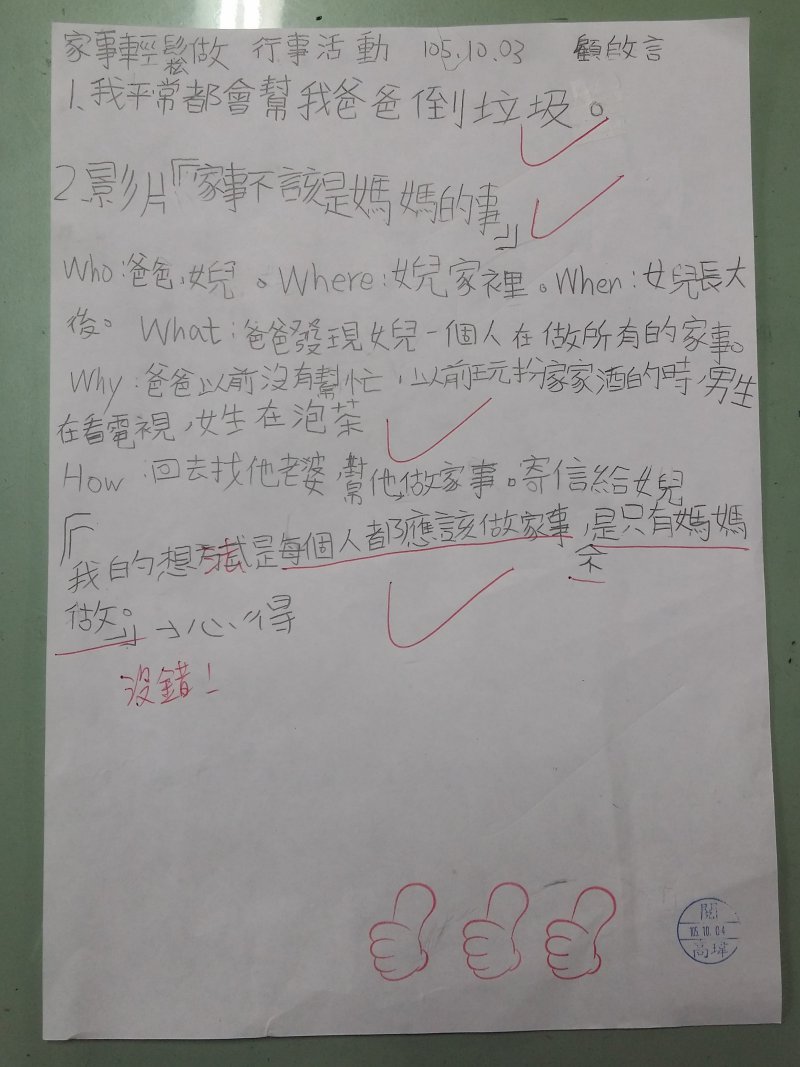 家事輕鬆做 行事活動 105.10.03 顧啟言
1.我平常都會幫我爸爸倒垃圾。
2.影片『家事不該是媽媽的事』
Who:爸爸,女兒。Where:女兒家裡。When:女兒長大
後。What:爸爸發現女兒一個人在做所有的家事。
Why:爸爸以前沒有幫忙,以前玩扮家家酒的時,男生
在看電視,女生在泡茶
How:回去找他老婆,幫他做家事。寄信給女兒
『我的想法是每個人都應該做家事,不是只有媽媽
做。』→心得
沒錯!
閱
105.10.04
高瑋